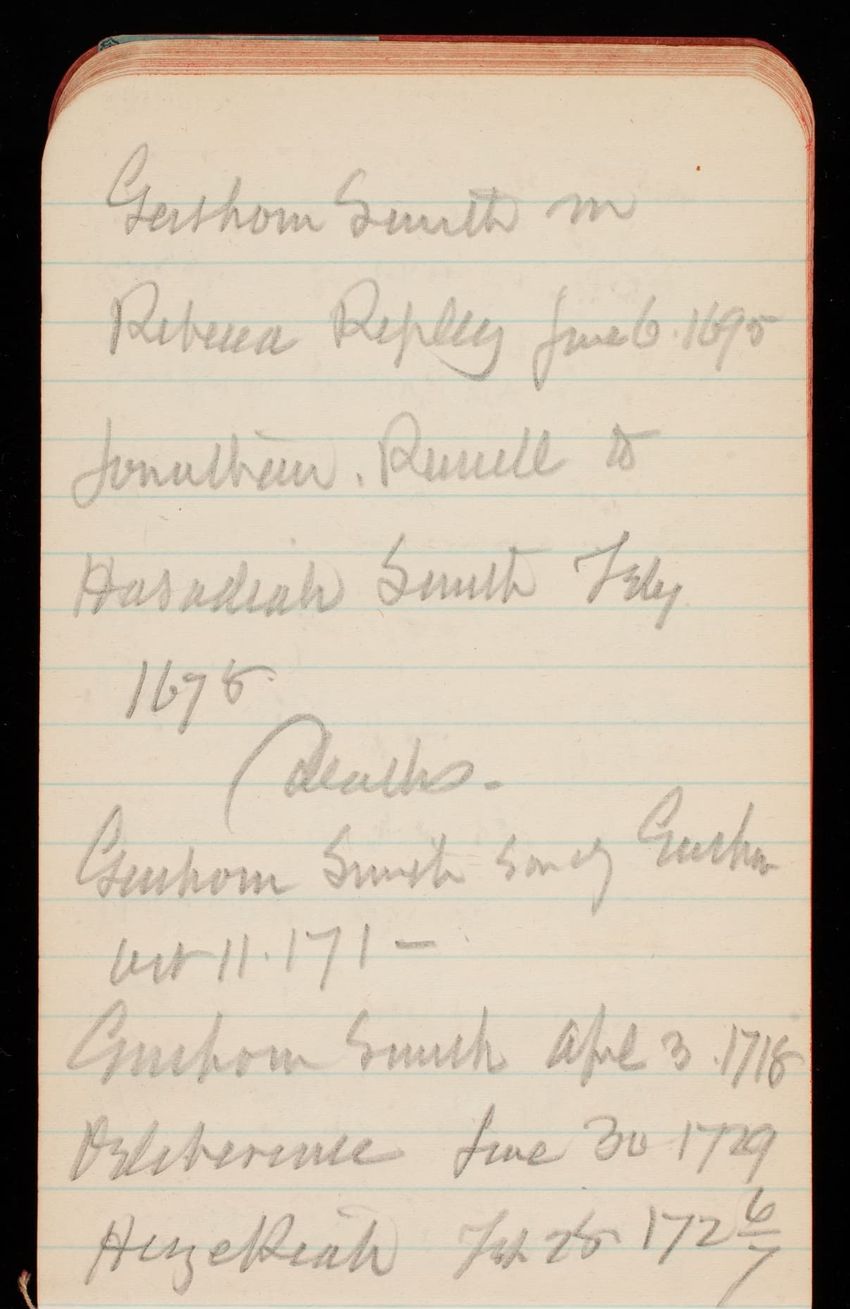 Gershom Smith m
Rebecca Repley June 6. 1695
Jonathan. Russell to
Hasadiah Smith Feby
1675
Deaths -
Gershom Smith son of Gershom
Oct 11. 171 -
Gershom Smith Apl 3. 1718
Deliverance June 30 1729
Hezekiah Feb 28 172 6/7